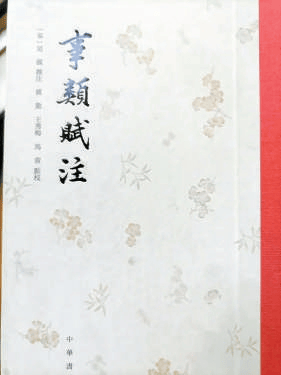 事類賦注
〔宋〕吳淑 撰注 冀勤 王秀梅 馬蓉 點校
中華書